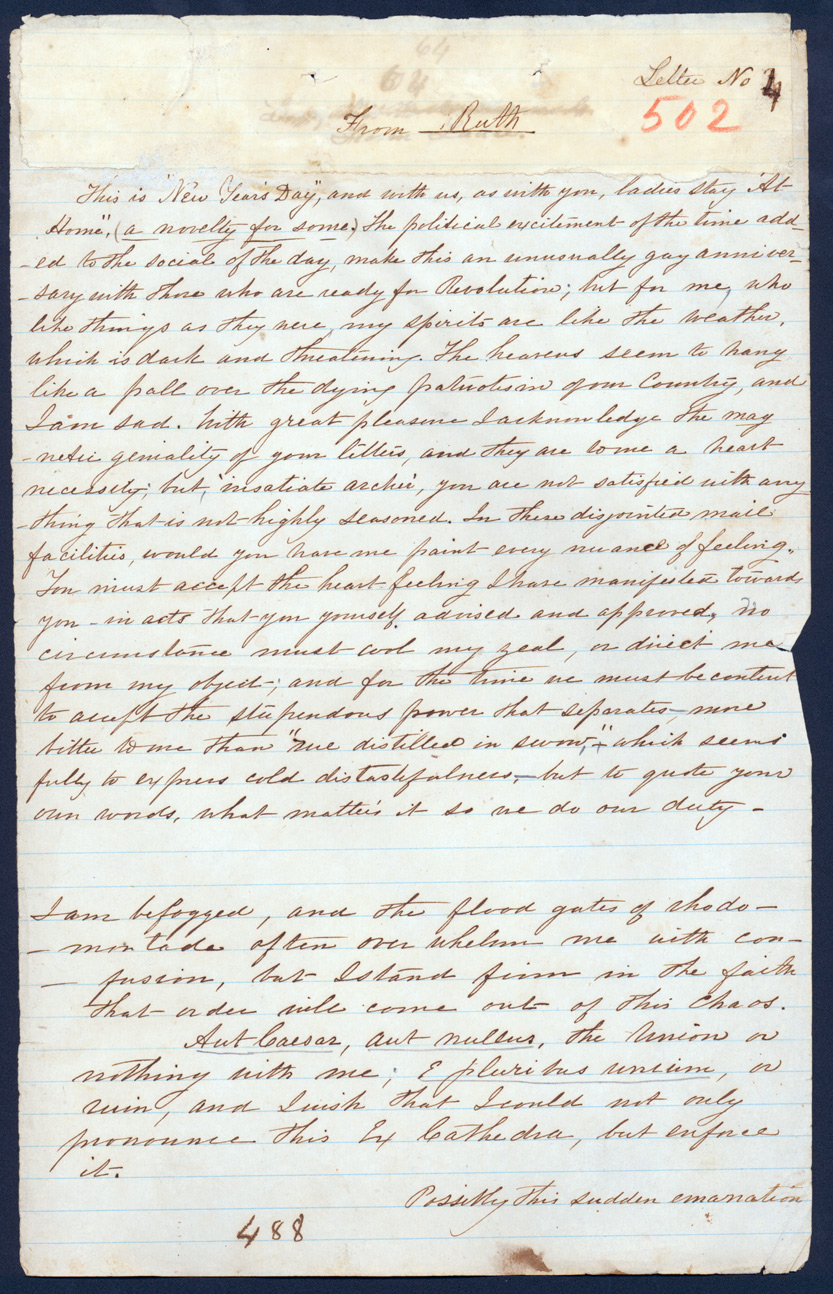 64
64
Letter No 4
502
From Ruth
This is "New Year's Day", and with us, as with you, ladies stay "At
Home", (a novelty for some.) The political excitement of the time add-
-ed to the social of the day, make this an unusually gay anniver-
-sary with those who are ready for Revolution; but for me, who
like things as they were, my spirits are like the weather,
which is dark and threatening. The heavens seem to hang
like a pall over the dying patriotism of our Country, and
I am sad. With great pleasure I acknowledge the mag
-netic geniality of your letters, and they are to me a heart
necessity; but, "insatiate archer", you are not satisfied with any
-thing that is not highly seasoned. In these disjointed mail
facilities, would you have me paint every nuance of feeling.
You must accept the heart-feeling I have manifested towards
you - in acts that you yourself advised and approved, no
circumstance must cool my zeal, or direct me
from my object; and for the time we must be content
to accept the stupendous power that separates - more
bitter to me than "rue distilled in snow," - which seems
fully to express cold distastefulness, - but to quote your
own words, what matters it so we do our duty -
I am befogged, and the flood gates of rhodo-
- montade often over whelm me with con-
- fusion, but I stand firm in the faith
that order will come out of this chaos.
Aut Caesar, aut nullus, the Union or
nothing with me; E pluribus unum, or
ruin, and I wish that I could not only
pronounce this Ex Cathedra, but enforce
it.
Possibly this sudden emanation
488